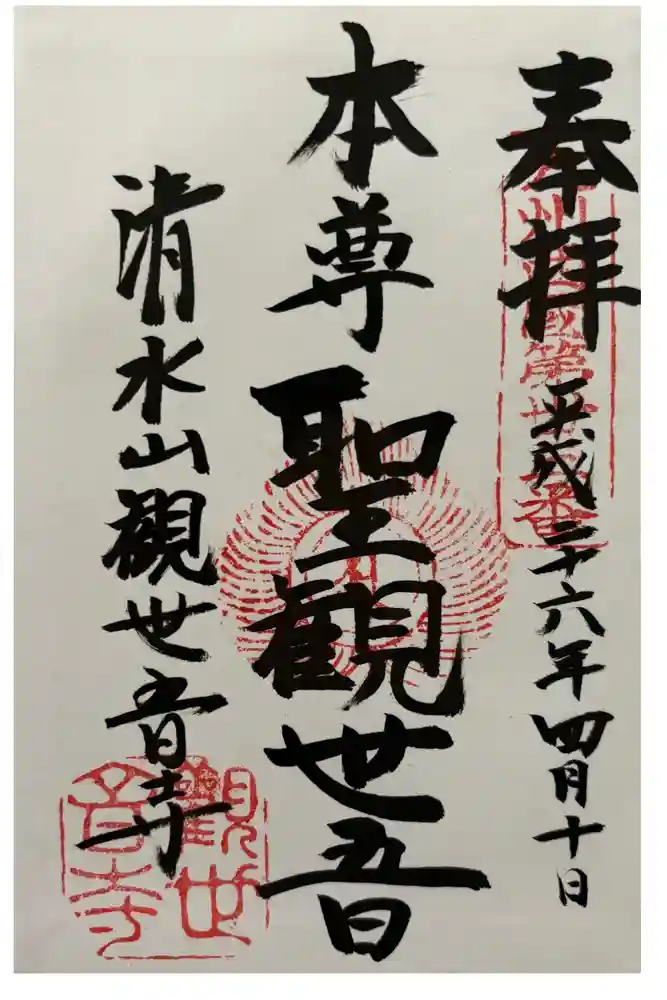 奉拝 平成二十六年四月十日
本尊 聖観世音
清水山観世音寺
観世音寺